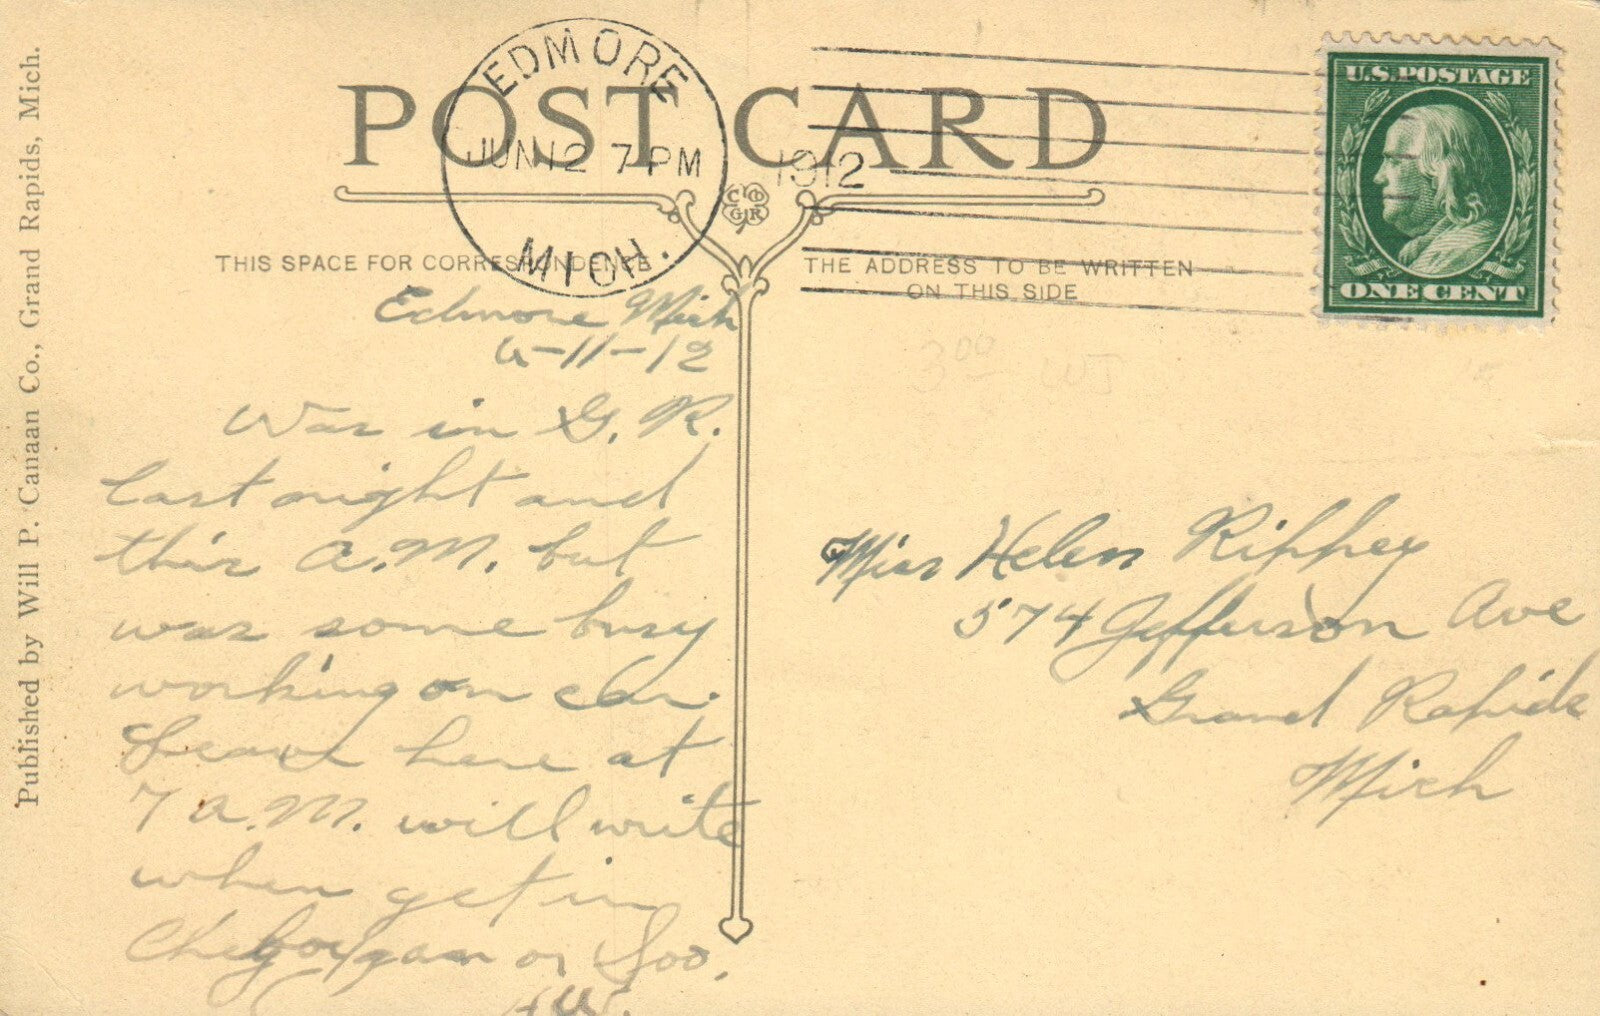 Published by Will P. Canaan Co., Grand Rapids, Mich.
EDMORE
JUN 12 7 PM
MICH.
1912
POST CARD
C O
G R
U.S. POSTAGE
ONE CENT
THIS SPACE FOR CORRESPONDENCE
Edmore Mich
6-11-12
Was in G. R.
last night and
this A.M. but
was some busy
working on car.
Leave here at
7 A.M. will write
when get in
Cheboygan or Soo.
THE ADDRESS TO BE WRITTEN
ON THIS SIDE
3 00 WJ
Miss Helen Rippey
574 Jefferson Ave
Grand Rapids
Mich